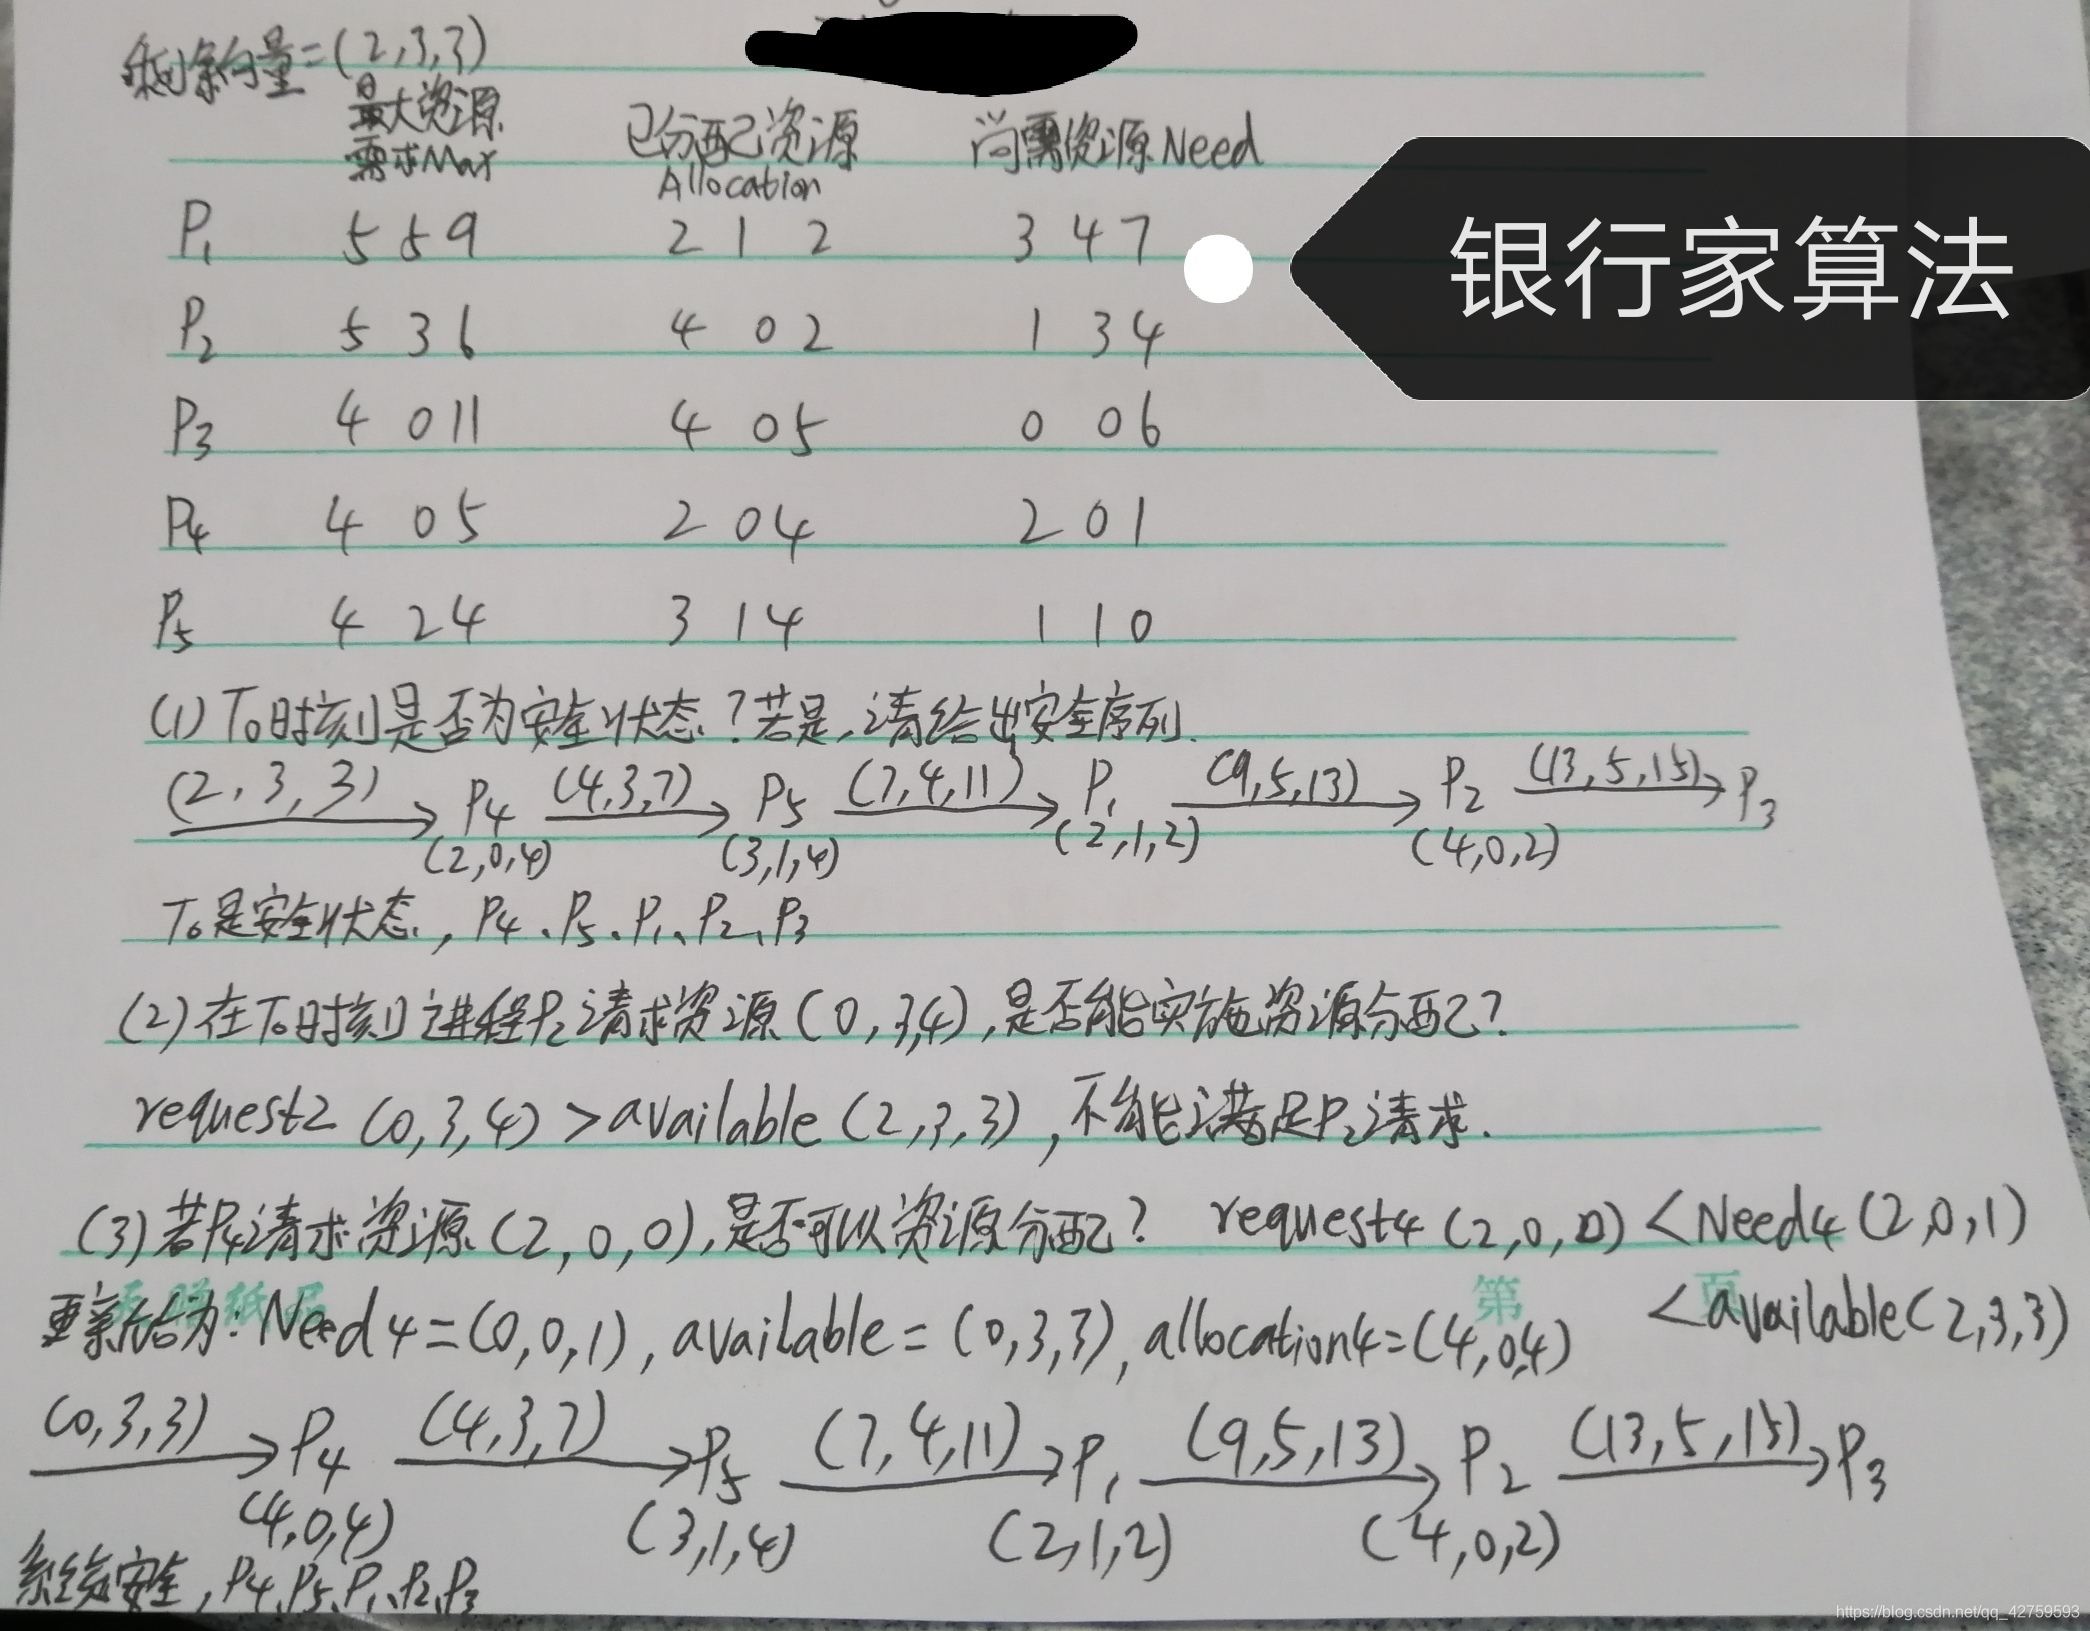 剩余向量=(2,3,3)
最大资源需求Max 已分配资源Allocation 尚需资源Need
银行家算法
P1 5 5 9 2 1 2 3 4 7
P2 5 3 6 4 0 2 1 3 4
P3 4 0 11 4 0 5 0 0 6
P4 4 0 5 2 0 4 2 0 1
P5 4 2 4 3 1 4 1 1 0
(1)T0时刻是否为安全状态?若是,请给出安全序列.
(2,3,3)→P4 (4,3,7)→P5 (7,4,11)→P1 (9,5,13)→P2 (13,5,15)→P3
(2,0,4) (3,1,4) (2,1,2) (4,0,2)
T0是安全状态,P4、P5、P1、P2、P3
(2)在T0时刻进程P2请求资源(0,3,4),是否能实施资源分配?
request2(0,3,4)>available(2,3,3),不能满足P2请求.
(3)若P4请求资源(2,0,0),是否可以资源分配? request4(2,0,0)<Need4(2,0,1)
<available(2,3,3)
更新后为:Need4=(0,0,1),available=(0,3,3),allocation4=(4,0,4)
第 页
(0,3,3)→P4 (4,3,7)→P5 (7,4,11)→P1 (9,5,13)→P2 (13,5,15)→P3
(4,0,4) (3,1,4) (2,1,2) (4,0,2)
系统安全,P4、P5、P1、P2、P3
https://blog.csdn.net/qq_42759593